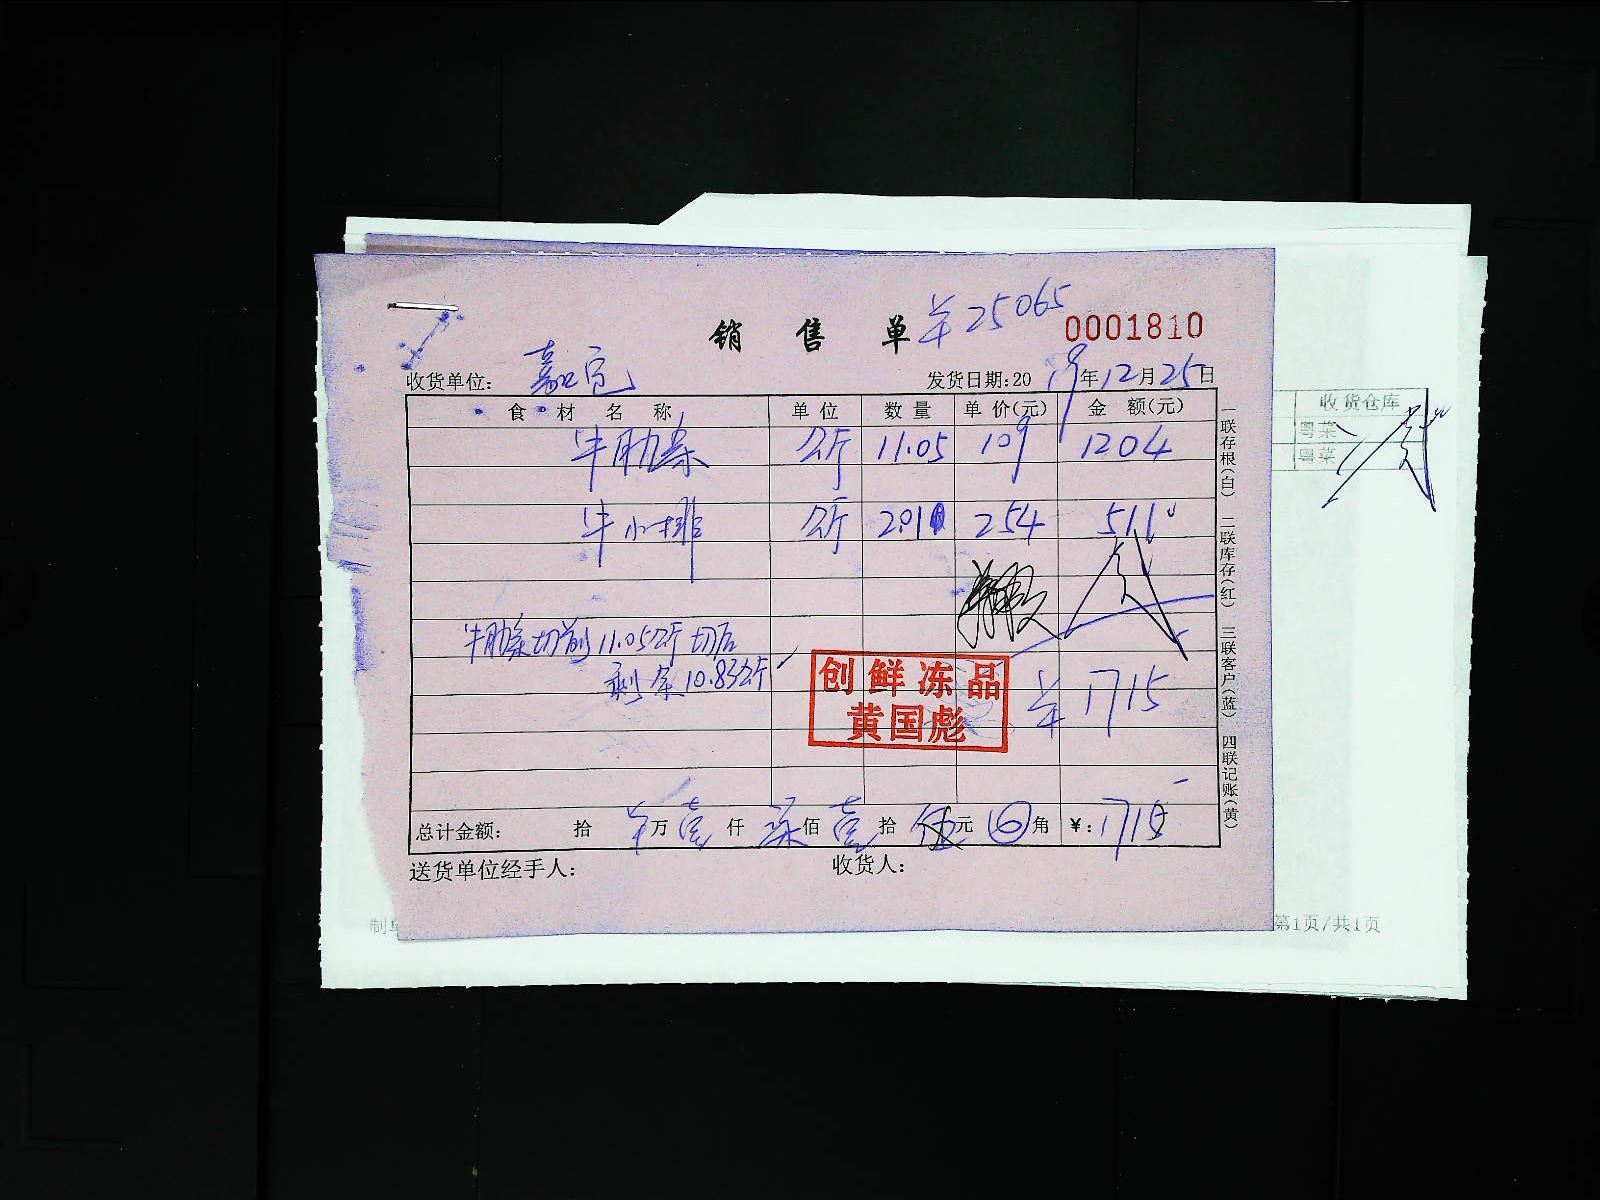 销售单 ¥25065 0001810
收货单位: 嘉宽 发货日期:2019年12月25日
食材名称 单位 数量 单价(元) 金额(元)
牛肋条 公斤 11.05 109 1204
牛小排 公斤 2.01 254 511
牛肋条切前11.05公斤 切后
剩余10.83公斤
创鲜冻品
黄国彪
¥1715
总计金额: 拾 ¥万壹仟柒佰壹拾伍元0角 ¥:1715
送货单位经手人: 收货人:
一联存根(白) 二联库存(红) 三联客户(蓝) 四联记账(黄)
收货仓库
粤菜
粤菜
第1页/共1页